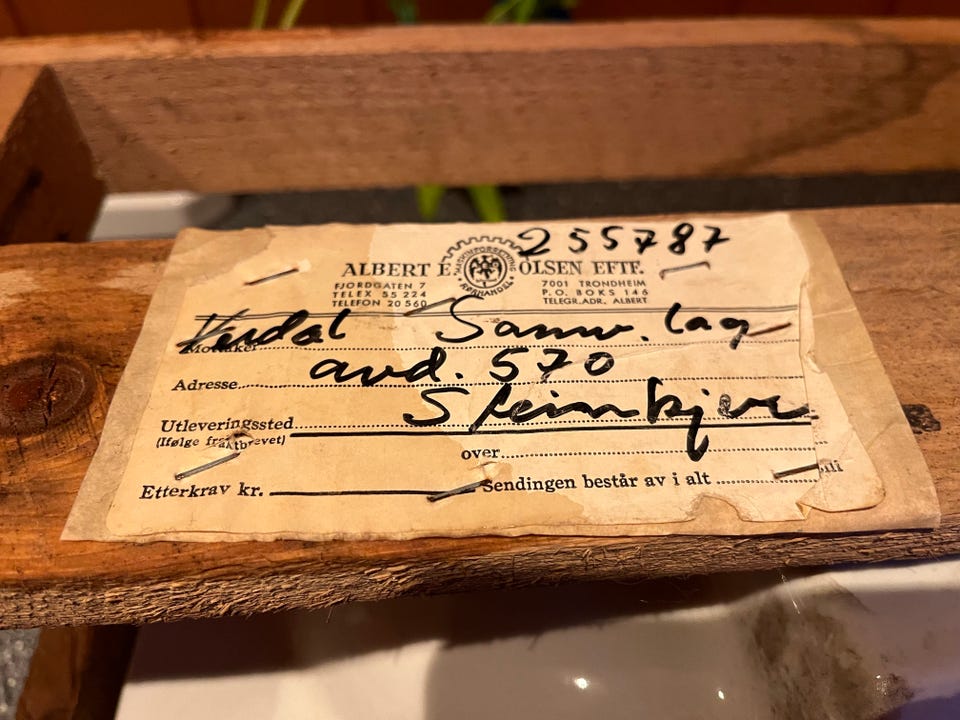 255787
ALBERT E. OLSEN EFTF.
MASKINFORRETNING
RØRHANDEL
FJORDGATEN 7
TELEX 55 224
TELEFON 20 560
7001 TRONDHEIM
P.O. BOKS 146
TELEGR.ADR. ALBERT
Mottaker Verdal Samv. lag
Adresse avd. 570
Utleveringssted Steinkjer
(Ifølge fraktbrevet)
over
Etterkrav kr. Sendingen består av i alt